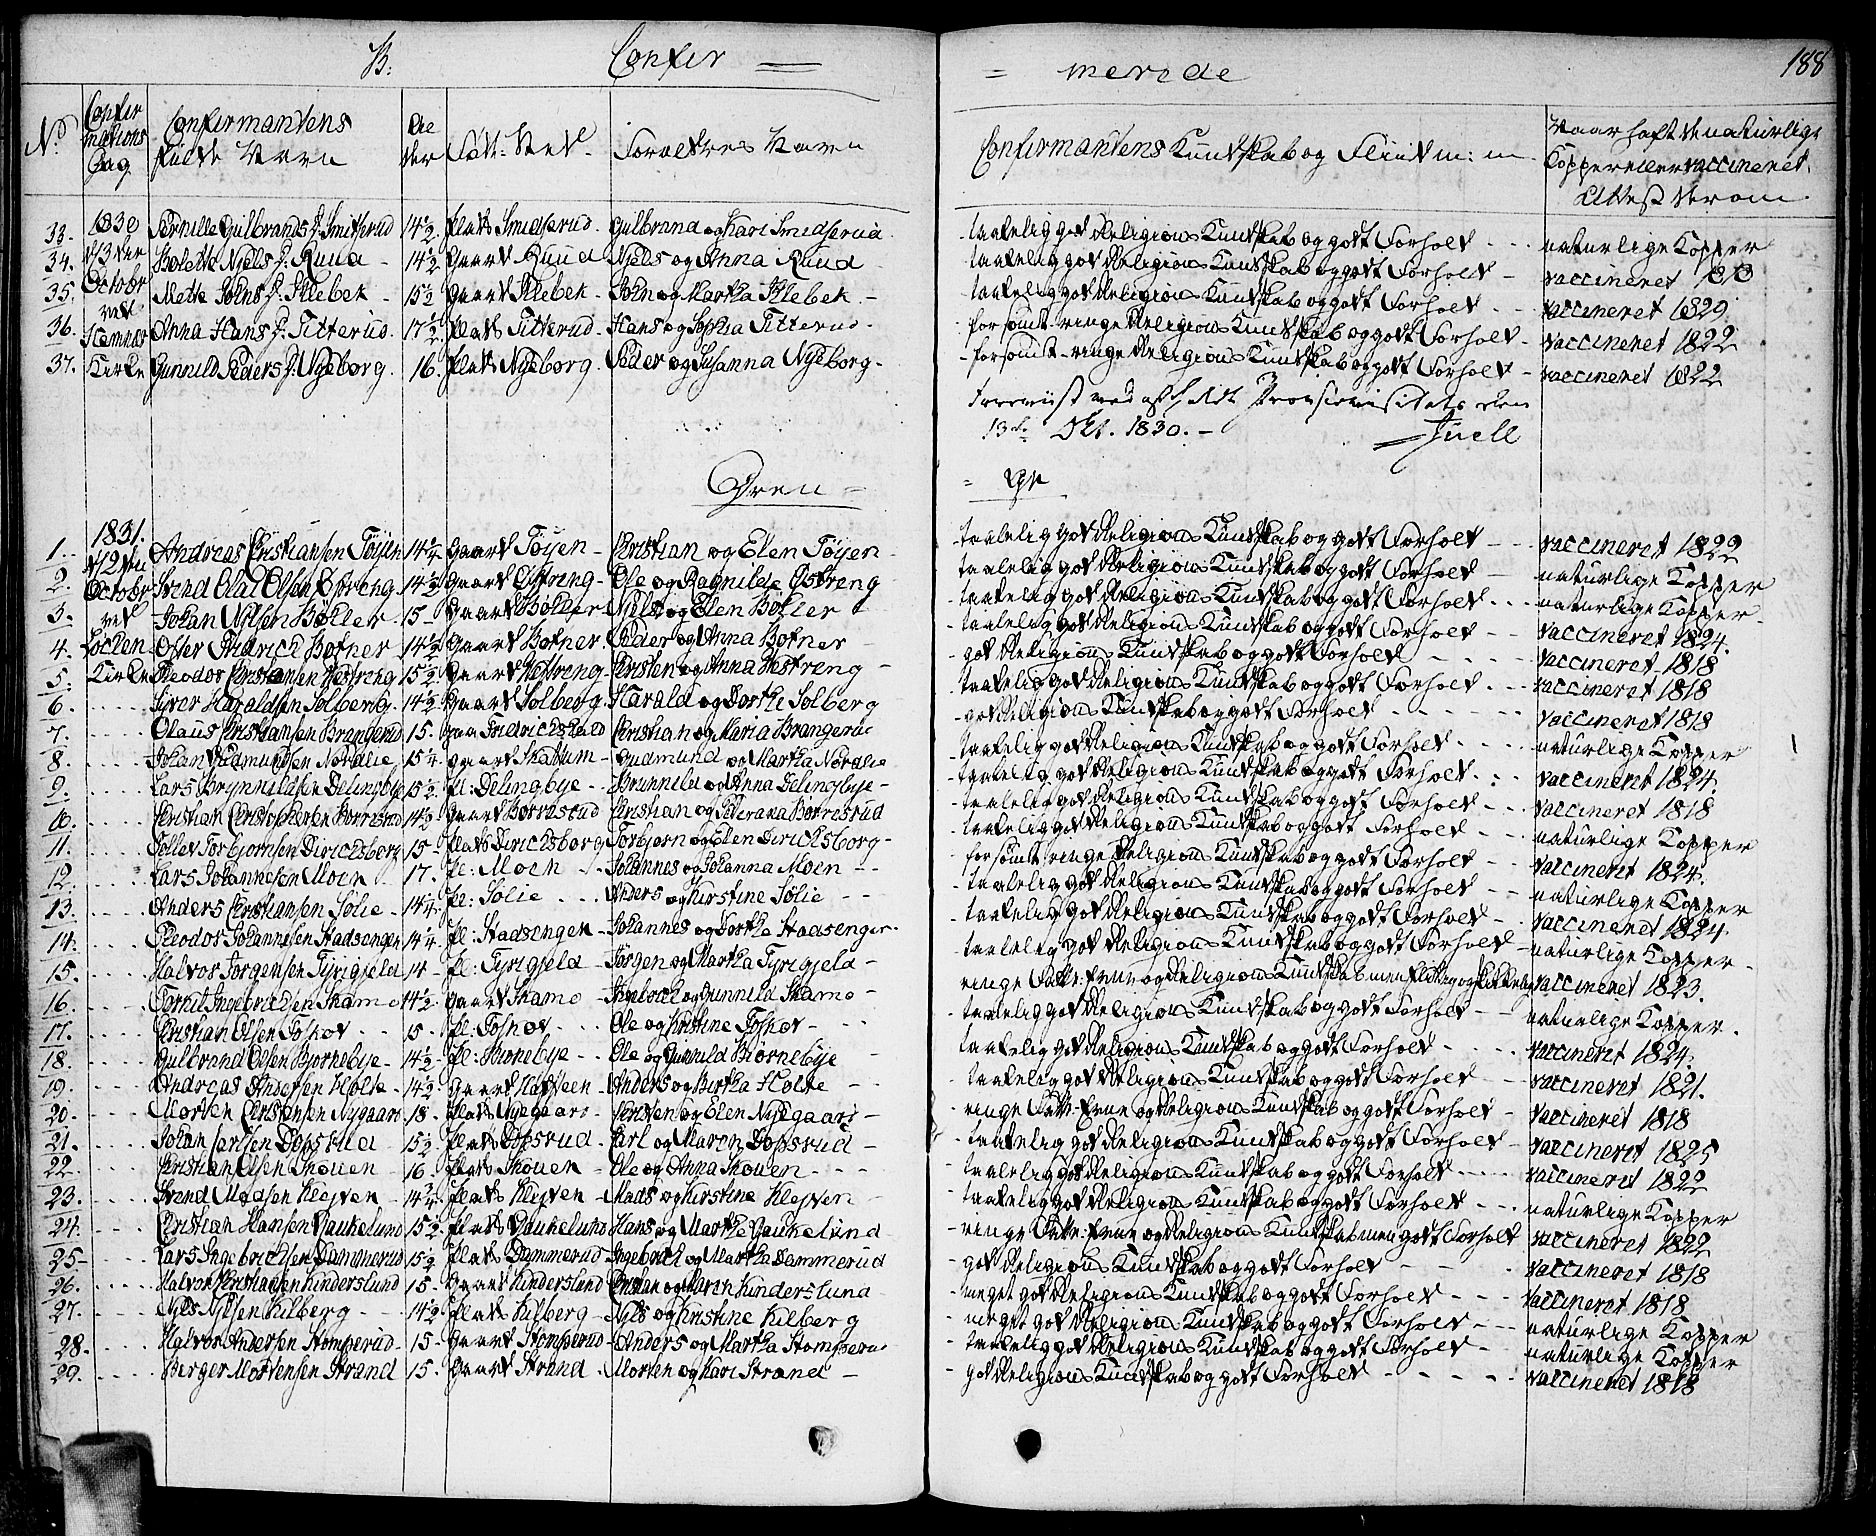 B: Confir = = merede 188
No Confirmations Dag Confirmantens fulde Navn Alder Fød: Sted Forældres Navn Confirmantens Kundskab og Fliid m: m. Naar haft de naturlige Kopper eller vaccineret, Attest derom
33. 1830 Pernille Gulbrands D. Smidserud 14½ Plads Smidserud Gulbrand og Kari Smidserud taalelig god Religions Kundskab og godt Forhold naturlige Kopper
34. d 3die Bolette Niels D. Ruud 14½ Gaard Ruud Niels og Anna Ruud taalelig god Religions Kundskab og godt Forhold vaccineret
35. October Mette Johns D. Slebek 15½ Gaard Slebek John og Martha Slebek taalelig god Religions Kundskab og godt Forhold vaccineret 1829
36. ved Hemnæs Anna Hans D. Titterud 17½ Plads Titterud Hans og Sophia Titterud forsømt ringe Religions Kundskab og godt Forhold vaccineret 1822
37. Kirke Gunnild Peders D. Nyeborg 16. Plads Nyeborg Peder og Susanna Nyeborg forsømt ringe Religions Kundskab og godt Forhold vaccineret 1822
13de Oct. 1830. Juell
Dren = = ge
1. 1831. Andreas Christiansen Töyen 14¼ Gaard Töyen Christian og Elen Töyen taalelig god Religions Kundskab og godt Forhold vaccineret 1822
2. d 2den October Svend Olai Olsen Østreng 14½ Gaard Østreng Ole og Ragnilde Østreng taalelig god Religions Kundskab og godt Forhold naturlige Kopper
3. ved Johan Nilsen Bøhler 15 Gaard Bøhler Niels og Elen Bøhler taalelig god Religions Kundskab og godt Forhold naturlige Kopper
4. Lochen Fridrich Botner 14½ Gaard Botner Peder og Anna Botner taalelig god Religions Kundskab og godt Forhold vaccineret 1824.
5. Kirke Theodor Christensen Vestreng 15½ Gaard Vestreng Christen og Anna Vestreng god Religions Kundskab og godt Forhold vaccineret 1818
6. Syver Haraldsen Solberg 14½ Gaard Solberg Harald og Dorthe Solberg taalelig god Religions Kundskab og godt Forhold vaccineret 1818
7. Olaus Christiansen Brangerud 15. Fredrichshald Christian og Maria Brangerud god Religions Kundskab og godt Forhold vaccineret 1818
8. Johan Gudmundsen Nordlie 15¼ Gaard Skattum Gudmund og Martha Nordlie taalelig god Religions Kundskab og godt Forhold naturlige Kopper
9. Lars Brynnildsen Delingbye 15½ Pl: Delingbye Brynnild og Anna Delingbye taalelig god Religions Kundskab og godt Forhold vaccineret 1824.
10. Christian Christophersen Borrestad 14½ Gaard Borrestad taalelig god Religions Kundskab og godt Forhold vaccineret 1818
11. Tollev Torbjørnsen Dirichsborg 15 Plads Dirichsborg Torbjørn og Elen Dirichsborg taalelig god Religions Kundskab og godt Forhold naturlige Kopper
12. Lars Johannesen Moen 17. Pl: Moen Johannes og Johanna Moen forsømt ringe Religions Kundskab og godt Forhold vaccineret 1824.
13. Anders Christiansen Solie 14¼ Pl: Solie Anders og Kirstine Solie taalelig god Religions Kundskab og godt Forhold naturlige Kopper
14. Theodor Johannesen Stadsengen 14¼ Pl: Stadsengen Johannes og Dorthe Stadsengen taalelig god Religions Kundskab og godt Forhold vaccineret 1824
15. Halvor Jørgensen Tyrigjeld 14 Pl: Tyrigjeld Jørgen og Martha Tyrigjeld taalelig god Religions Kundskab og godt Forhold naturlige Kopper
16. Ingebrichtsen Skamo 14½ Gaard Skamo Ingebrict og Gunnild Skamo ringe Fatte-Evne og Religions Kundskab men flittig og skikkelig vaccineret 1823.
17. Christian Olsen Foshov 15 Pl: Foshov Ole og Kirstine Foshov taalelig god Religions Kundskab og godt Forhold naturlige Kopper.
18. Gulbrand Olsen Bjørnebye 14½ Pl: Bjørnebye Ole og Gunnild Bjørnebye taalelig god Religions Kundskab og godt Forhold vaccineret 1824.
19. Andreas Andersen Holde 14½ Gaard Anders og Bertha Holde taalelig god Religions Kundskab og godt Forhold vaccineret 1821.
20. Morten Christensen Nygaard 18 Plads Nyegaard Christen og Elen Nyegaard ringe Fatte-Evne og Religions Kundskab og godt Forhold vaccineret 1818
21. Johan Dopsrud 15½ Plads Dopsrud Carl og Maren Dopsrud taalelig god Religions Kundskab og godt Forhold vaccineret 1825
22 Christian Olsen Skouen 16 Plads Skouen Ole og Anna Skouen taalelig god Religions Kundskab og godt Forhold vaccineret 1822
23. Svend Madsen Kleyven 14¾ Plads Kleyven Mads og Kirstine Kleyven taalelig god Religions Kundskab og godt Forhold naturlige Kopper
24. Christian Hansen Gaukelund 15½ Plads Gaukelund Hans og Marthe Gaukelund ringe Fatte-Evne og Religions Kundskab men godt Forhold vaccineret 1822
25 Lars Ingebrichtsen Dammerud 15½ Plads Dammerud Ingebrict og Martha Dammerud god Religions Kundskab og godt Forhold vaccineret 1818
26. Halvor Christiansen Kinderslund 15 Gaard Kinderslund Christian og Maren Kinderslund meget god Religions Kundskab og godt Forhold vaccineret 1818
27. Nils Nilsen Kilberg 14½ Plads Kilberg Nils og Kirstine Kilberg meget god Religions Kundskab og godt Forhold naturlige Kopper
28. Halvor Andersen Stomperud 15 Gaard Stomperud Anders og Martha Stomperud taalelig god Religions Kundskab og godt Forhold naturlige Kopper
29. Berger Mortensen Strand 15 Gaard Strand Morten og Kari Strand god Religions Kundskab og godt Forhold vaccineret 1818